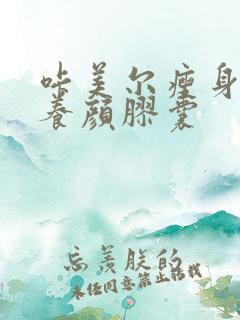 啨美尔瘦身
养颜膠囊
忘羡朕的
未经同意禁止转载